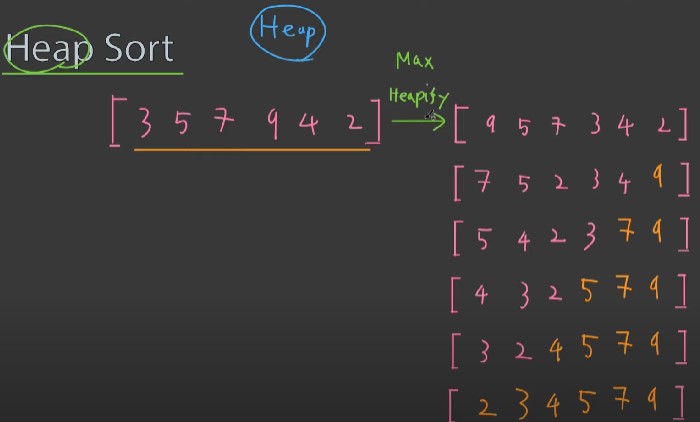 Heap Sort
Heap
Max
Heapify
[ 3 5 7 9 4 2 ]
[ 9 5 7 3 4 2 ]
[ 7 5 2 3 4 9 ]
[ 5 4 2 3 7 9 ]
[ 4 3 2 5 7 9 ]
[ 3 2 4 5 7 9 ]
[ 2 3 4 5 7 9 ]